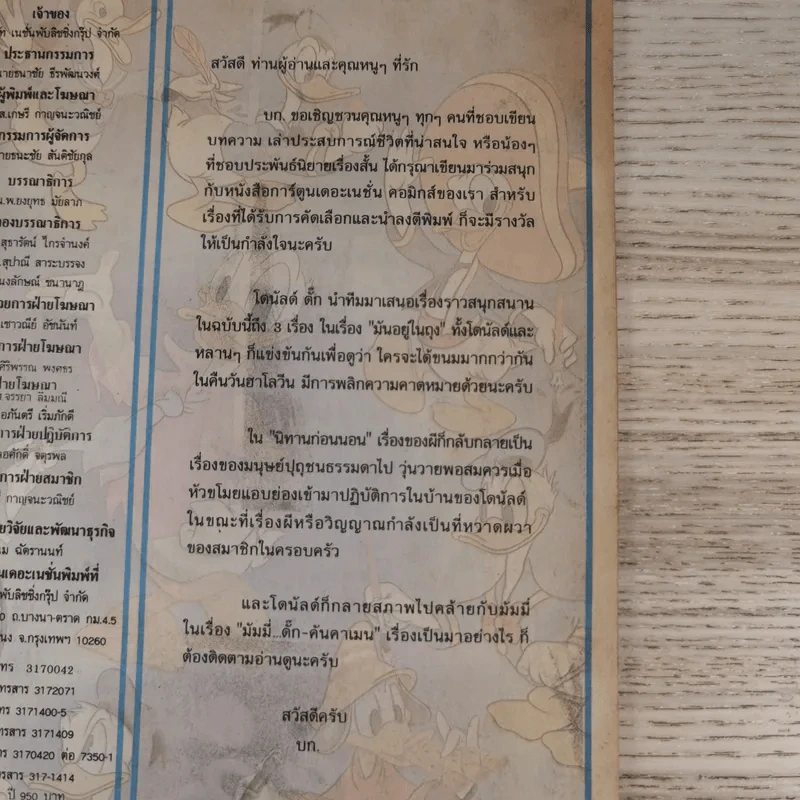 เจ้าของ
เนชั่นพับลิชชิ่งกรุ๊ป จำกัด
ประธานกรรมการ
นายธนาชัย ธีรพัฒนวงศ์
ผู้พิมพ์และโฆษณา
ส.เกษรี กาญจนะวณิชย์
กรรมการผู้จัดการ
นายธนะชัย สันติชัยกูล
บรรณาธิการ
น.พ.ยงยุทธ มัยลาภ
รองบรรณาธิการ
สุธารัตน์ ไกรจำนงค์
.สุปาณี สาระบรรจง
นงลักษณ์ ขนานาฎ
วยการฝ่ายโฆษณา
เชาวณีย์ อัชนันท์
การฝ่ายโฆษณา
ศิริพรรณ พงศธร
ฝ่ายโฆษณา
.จรรยา ลิมมณี
อภันตรี เริ่มภักดี
การฝ่ายปฏิบัติการ
อศักดิ์ จตุรพล
การฝ่ายสมาชิก
กาญจนะวณิชย์
ยวิจัยและพัฒนาธุรกิจ
เม ฉัตรานนท์
นเดอะเนชั่นพิมพ์ที่
พับลิชชิ่งกรุ๊ป จำกัด
0 ถ.บางนา-ตราด กม.4.5
นง จ.กรุงเทพฯ 10260
ทร 3170042
ทรสาร 3172071
ทร 3171400-5
ทรสาร 3171409
ทร 3170420 ต่อ 7350-1
ทรสาร 317-1414
ปี 950 บาท
สวัสดี ท่านผู้อ่านและคุณหนูๆ ที่รัก
บก. ขอเชิญชวนคุณหนูๆ ทุกๆ คนที่ชอบเขียน
บทความ เล่าประสบการณ์ชีวิตที่น่าสนใจ หรือน้องๆ
ที่ชอบประพันธ์นิยายเรื่องสั้น ได้กรุณาเขียนมาร่วมสนุก
กับหนังสือการ์ตูนเดอะเนชั่น คอมิกส์ของเรา สำหรับ
เรื่องที่ได้รับการคัดเลือกและนำลงตีพิมพ์ ก็จะมีรางวัล
ให้เป็นกำลังใจนะครับ
โดนัลด์ ดั๊ก นำทีมมาเสนอเรื่องราวสนุกสนาน
ในฉบับนี้ถึง 3 เรื่อง ในเรื่อง "มันอยู่ในถุง" ทั้งโดนัลด์และ
หลานๆ ก็แข่งขันกันเพื่อดูว่า ใครจะได้ขนมมากกว่ากัน
ในคืนวันฮาโลวีน มีการพลิกความคาดหมายด้วยนะครับ
ใน "นิทานก่อนนอน" เรื่องของผีก็กลับกลายเป็น
เรื่องของมนุษย์ปุถุชนธรรมดาไป วุ่นวายพอสมควรเมื่อ
หัวขโมยแอบย่องเข้ามาปฏิบัติการในบ้านของโดนัลด์
ในขณะที่เรื่องผีหรือวิญญาณกำลังเป็นที่หวาดผวา
ของสมาชิกในครอบครัว
และโดนัลด์ก็กลายสภาพไปคล้ายกับมัมมี่
ในเรื่อง "มัมมี่...ดั๊ก-คันคาเมน" เรื่องเป็นมาอย่างไร ก็
ต้องติดตามอ่านดูนะครับ
สวัสดีครับ
บก.